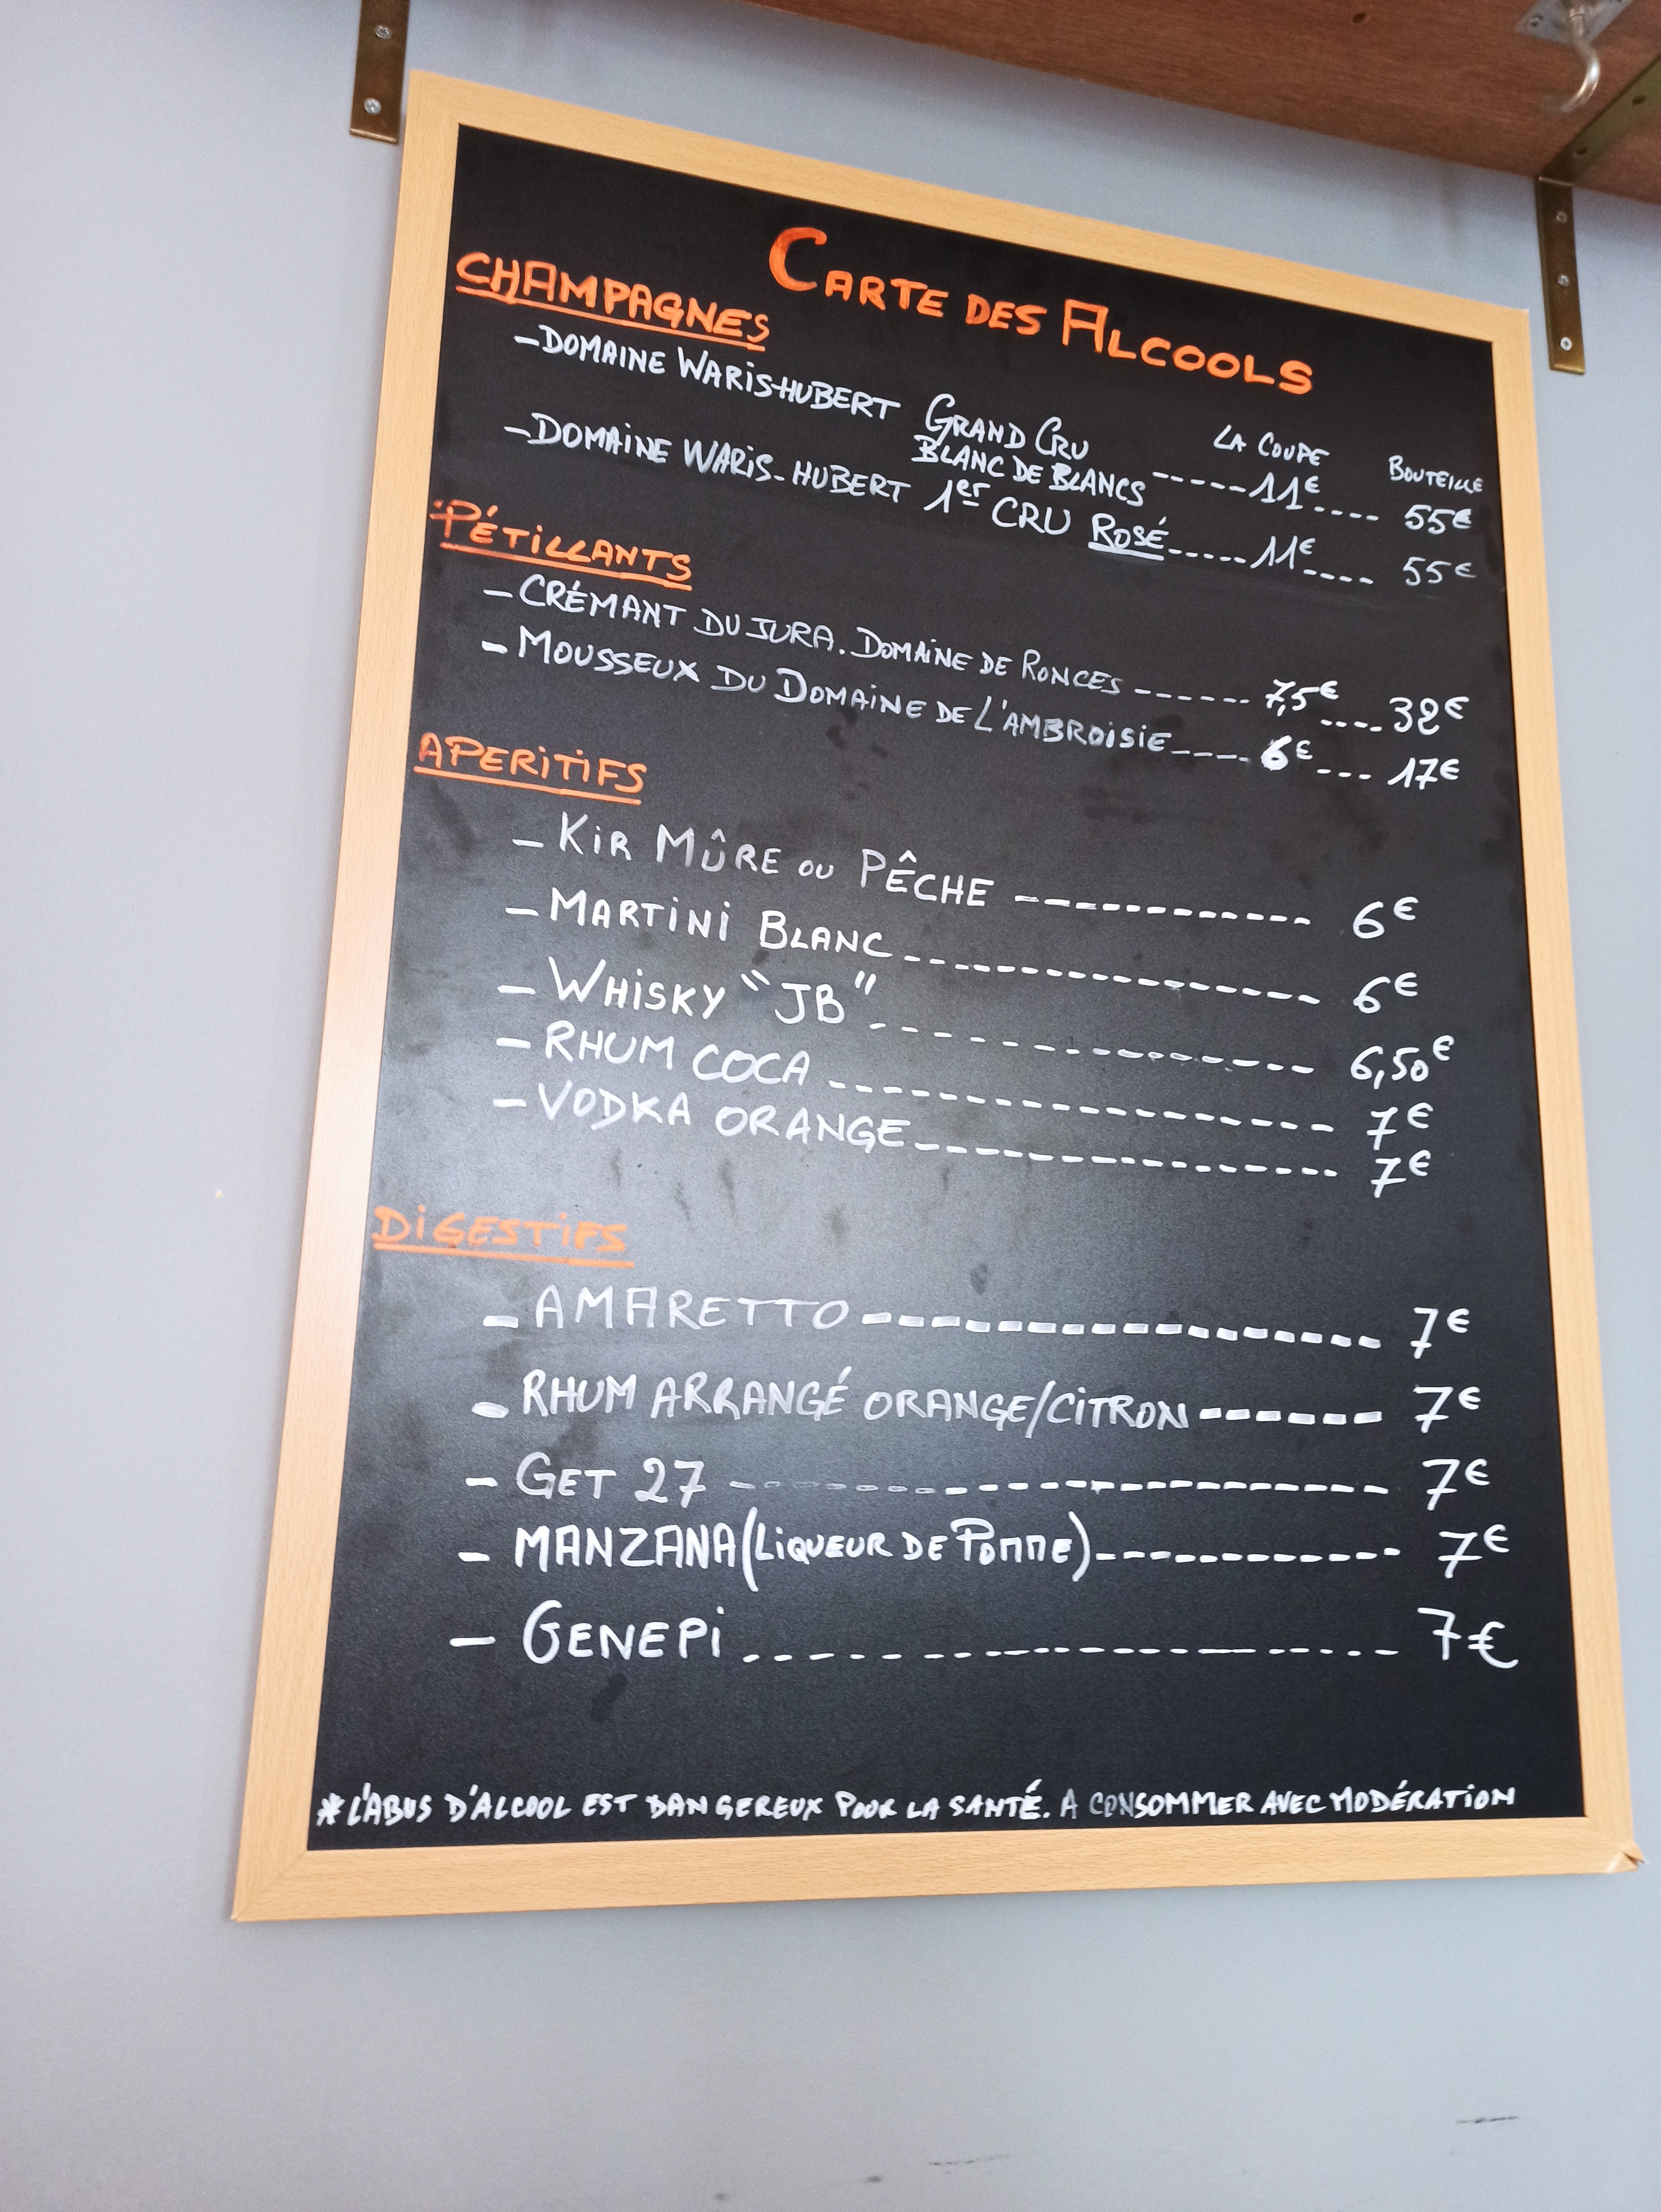 CARTE DES ALCOOLS
CHAMPAGNES
LA COUPE BOUTEILLE
- DOMAINE WARIS-HUBERT GRAND CRU
BLANC DE BLANCS ------ 11€ ---- 55€
- DOMAINE WARIS-HUBERT 1er CRU ROSÉ ----- 11€ ---- 55€
PÉTILLANTS
- CRÉMANT DU JURA. DOMAINE DE RONCES ------ 7,5€ ---- 32€
- MOUSSEUX DU DOMAINE DE L'AMBROISIE ---- 6€ --- 17€
APERITIFS
- KIR MÛRE OU PÊCHE ----------- 6€
- MARTINI BLANC --------------- 6€
- WHISKY "JB" --------------- 6,50€
- RHUM COCA ---------------- 7€
- VODKA ORANGE -------------- 7€
DIGESTIFS
- AMARETTO --------------- 7€
- RHUM ARRANGÉ ORANGE/CITRON ------ 7€
- GET 27 ------------------ 7€
- MANZANA (LIQUEUR DE POMME) ----------- 7€
- GENEPI ------------------ 7€
*L'ABUS D'ALCOOL EST DANGEREUX POUR LA SANTÉ. A CONSOMMER AVEC MODÉRATION